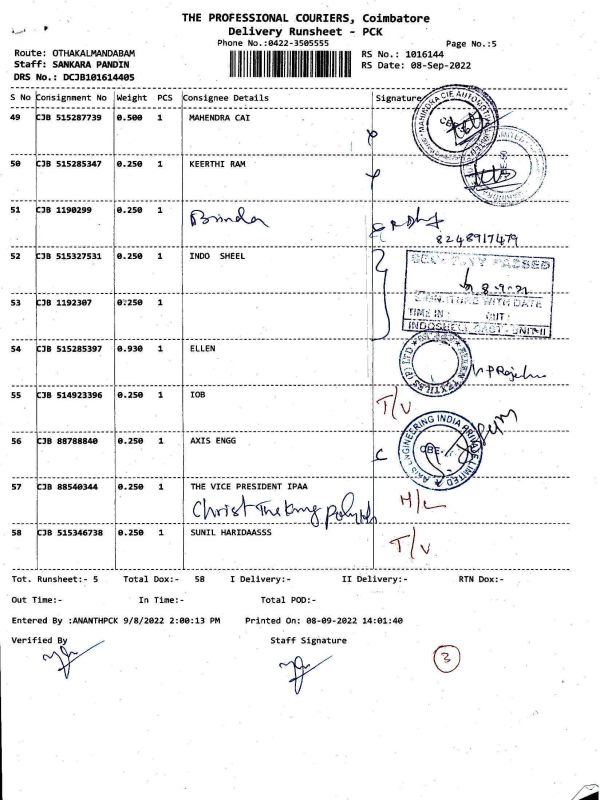 THE PROFESSIONAL COURIERS, Coimbatore
Delivery Runsheet - PCK
Phone No.:0422-3505555 Page No.:5
Route: OTHAKALMANDABAM RS No.: 1016144
Staff: SANKARA PANDIN RS Date: 08-Sep-2022
DRS No.: DCJB101614405
S No Consignment No Weight PCS Consignee Details Signature
49 CJB 515287739 0.500 1 MAHENDRA CAI
50 CJB 515285347 0.250 1 KEERTHI RAM
51 CJB 1190299 0.250 1 Brinda
8248917479
52 CJB 515327531 0.250 1 INDO SHEEL
SECURITY PASSED
8.9.22
SIGNATURE WITH DATE
TIME IN : OUT :
INDOSHELL CAST UNIT-II
53 CJB 1192307 0.250 1
54 CJB 515285397 0.930 1 ELLEN
55 CJB 514923396 0.250 1 IOB T/V
56 CJB 88788840 0.250 1 AXIS ENGG
AXIS ENGINEERING INDIA PRIVATE LIMITED
CBE
57 CJB 88540344 0.250 1 THE VICE PRESIDENT IPAA
Christ The King
58 CJB 515346738 0.250 1 SUNIL HARIDAASSS T/V
Tot. Runsheet:- 5 Total Dox:- 58 I Delivery:- II Delivery:- RTN Dox:-
Out Time:- In Time:- Total POD:-
Entered By :ANANTHPCK 9/8/2022 2:00:13 PM Printed On: 08-09-2022 14:01:40
Verified By Staff Signature
3